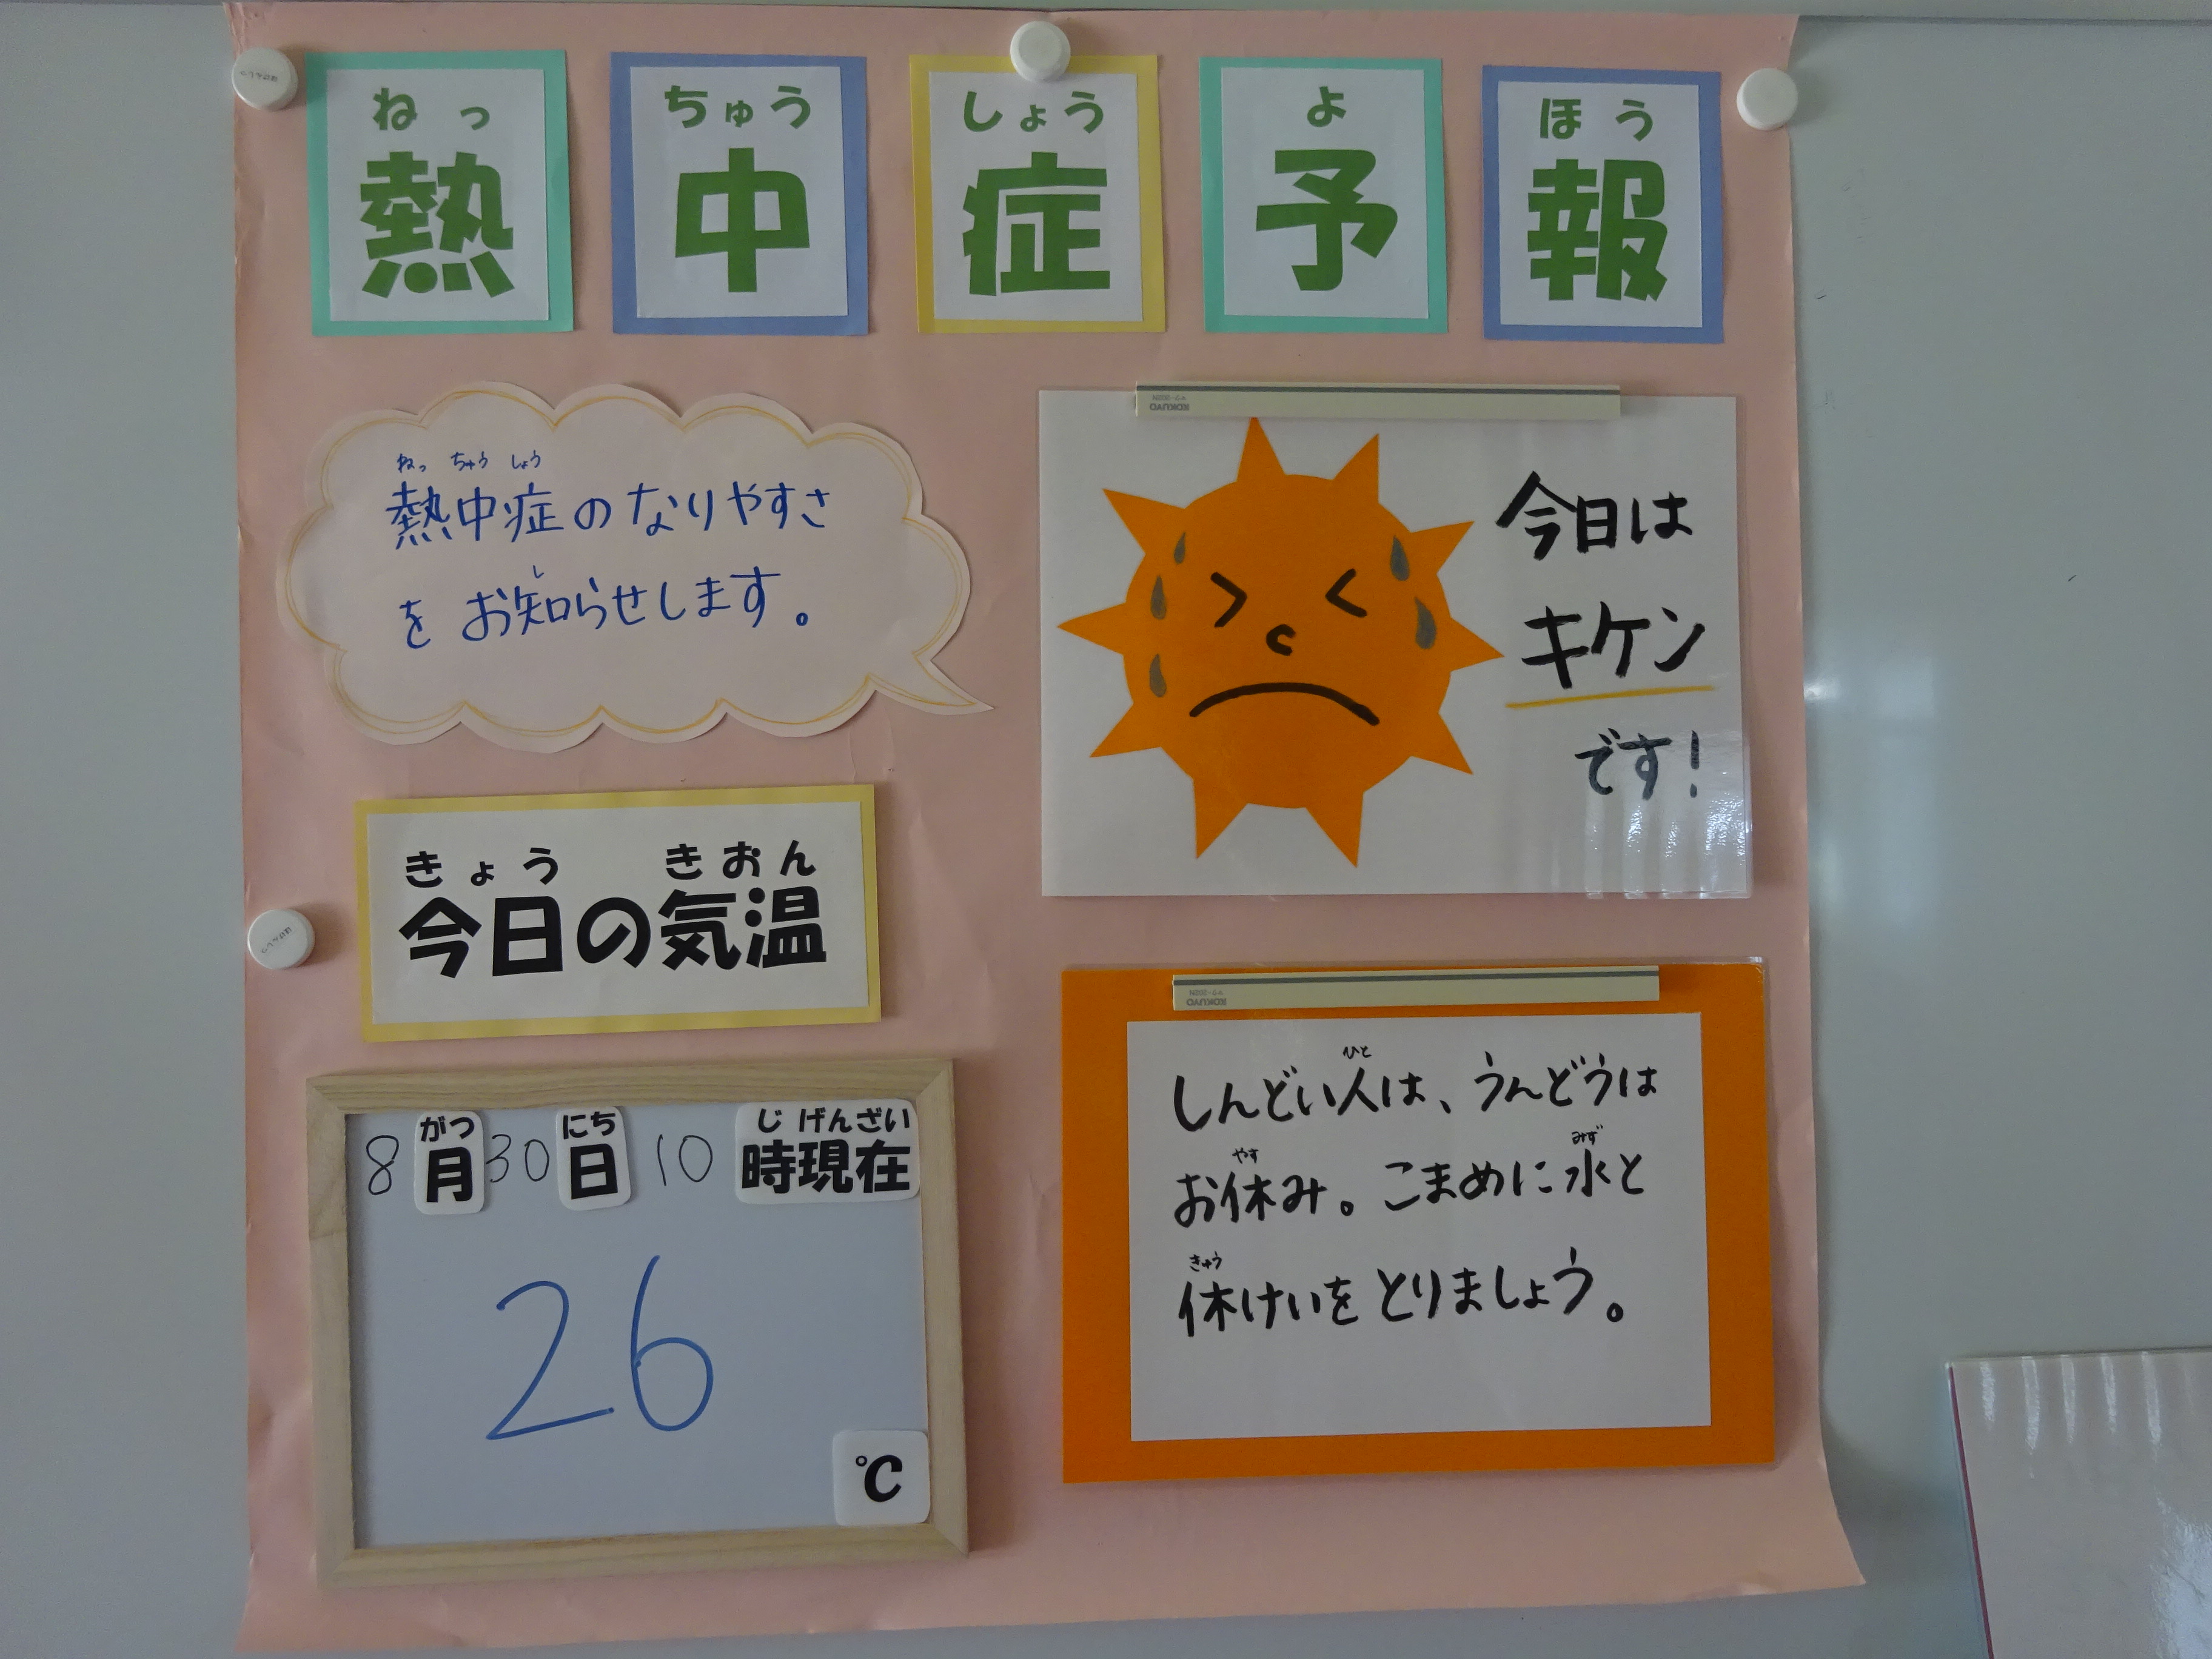 ねっ ちゅう しょう よ ほう
熱中症予報
ねっ ちゅう しょう
熱中症のなりやすさ
し
をお知らせします。
KOKUYO
今日は
キケン
です!
きょう きおん
今日の気温
がつ にち じ げんざい
8月30日 10時現在
26
℃
KOKUYO
ひと
しんどい人は、うんどうは
やす みず
お休み。こまめに水と
きゅう
休けいをとりましょう。